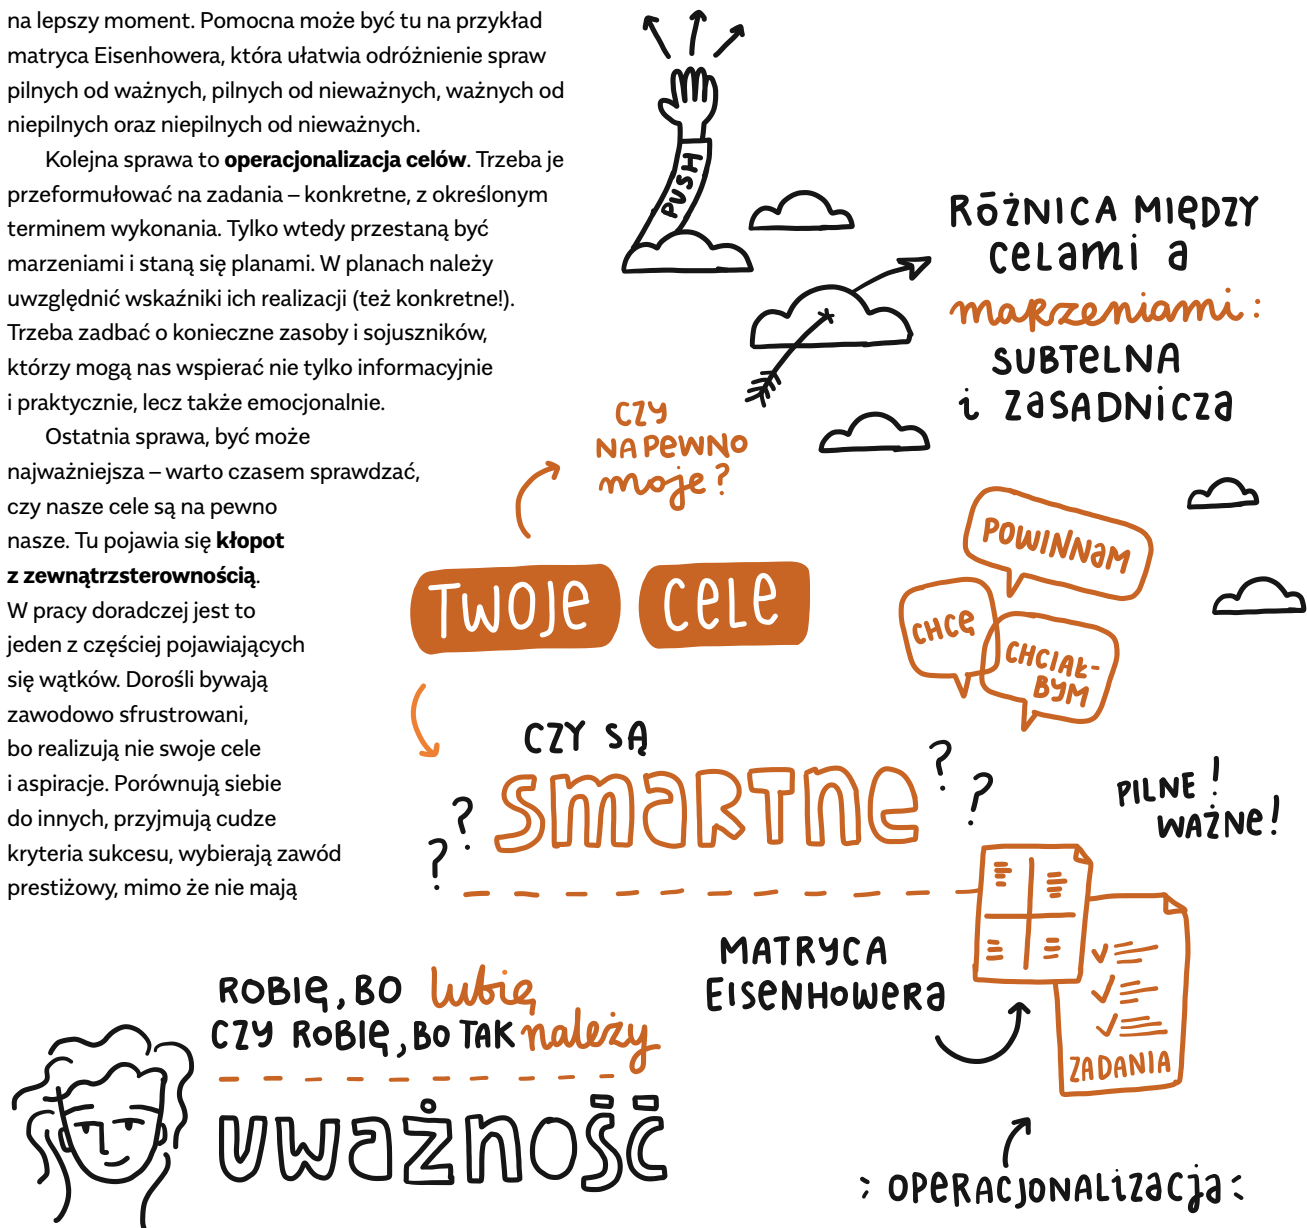 na lepszy moment. Pomocna może być tu na przykład
matryca Eisenhowera, która ułatwia odróżnienie spraw
pilnych od ważnych, pilnych od nieważnych, ważnych od
niepilnych oraz niepilnych od nieważnych.
Kolejna sprawa to operacjonalizacja celów. Trzeba je
przeformułować na zadania – konkretne, z określonym
terminem wykonania. Tylko wtedy przestaną być
marzeniami i staną się planami. W planach należy
uwzględnić wskaźniki ich realizacji (też konkretne!).
Trzeba zadbać o konieczne zasoby i sojuszników,
którzy mogą nas wspierać nie tylko informacyjnie
i praktycznie, lecz także emocjonalnie.
Ostatnia sprawa, być może
najważniejsza – warto czasem sprawdzać,
czy nasze cele są na pewno
nasze. Tu pojawia się kłopot
z zewnątrzsterownością.
W pracy doradczej jest to
jeden z częściej pojawiających
się wątków. Dorośli bywają
zawodowo sfrustrowani,
bo realizują nie swoje cele
i aspiracje. Porównują siebie
do innych, przyjmują cudze
kryteria sukcesu, wybierają zawód
prestiżowy, mimo że nie mają
PUSH
RÓŻNICA MIĘDZY
CELAMI A
marzeniami:
SUBTELNA
i ZASADNICZA
CZY
NA PEWNO
moje?
TWOJE CELE
POWINNAM
CHCĘ
CHCIAŁ-
BYM
CZY SĄ
SMARTNE
? ?
? ?
PILNE!
WAŻNE!
MATRYCA
EISENHOWERA
ZADANIA
OPERACJONALIZACJA
ROBIĘ, BO lubię
CZY ROBIĘ, BO TAK należy
UWAŻNOŚĆ